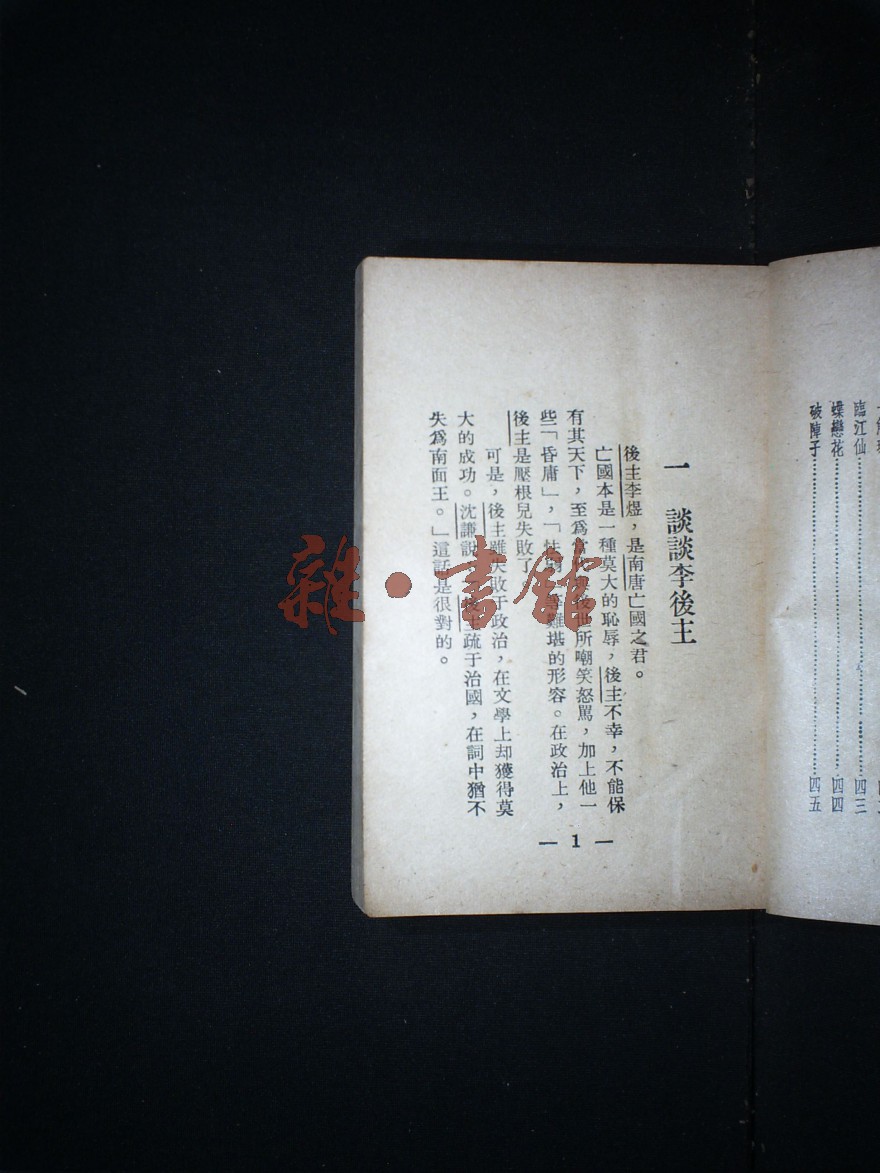 臨江仙……四三
蝶戀花……四四
破陣子……四五
一 談談李後主
後主李煜，是南唐亡國之君。
亡國本是一種莫大的恥辱，後主不幸，不能保
有其天下，至爲後世所嘲笑怒罵，加上他一
些「昏庸」，「怯難堪的形容。在政治上，
後主是壓根兒失敗了
可是，後主雖失敗于政治，在文學上却獲得莫
大的成功。沈謙說後主疏于治國，在詞中猶不
失爲南面王。」這話是很對的。
— 1 —
雜·書館